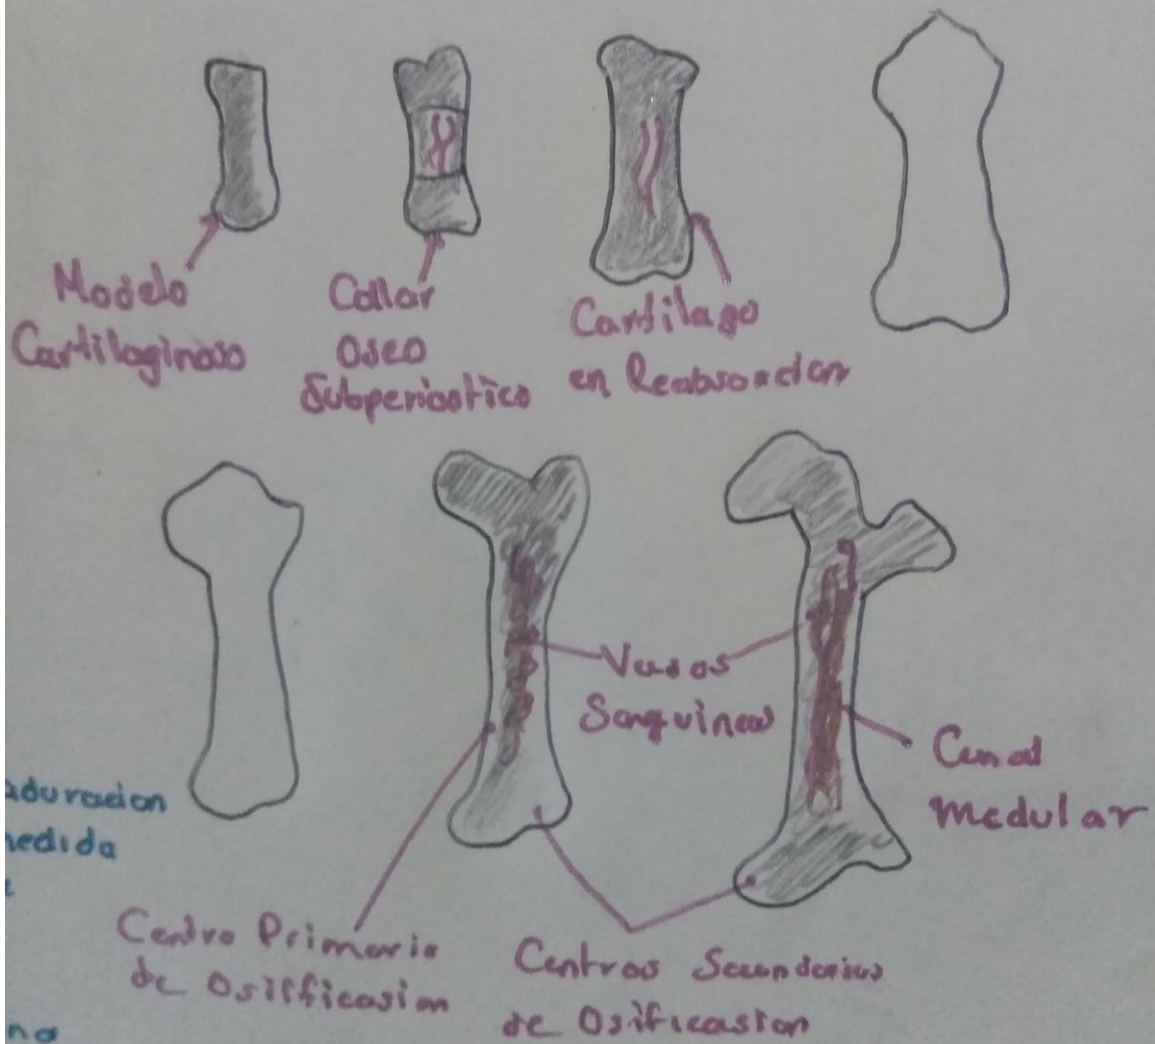 Modelo
Cartilaginoso
Collar
Oseo
Subperiostico
Cartilago
en Reabsorcion
Vasos
Sanguineos
Canal
Medular
aduracion
nedida
Centro Primario
de Osifficasion
Centros Secundarios
de Osificasion
no